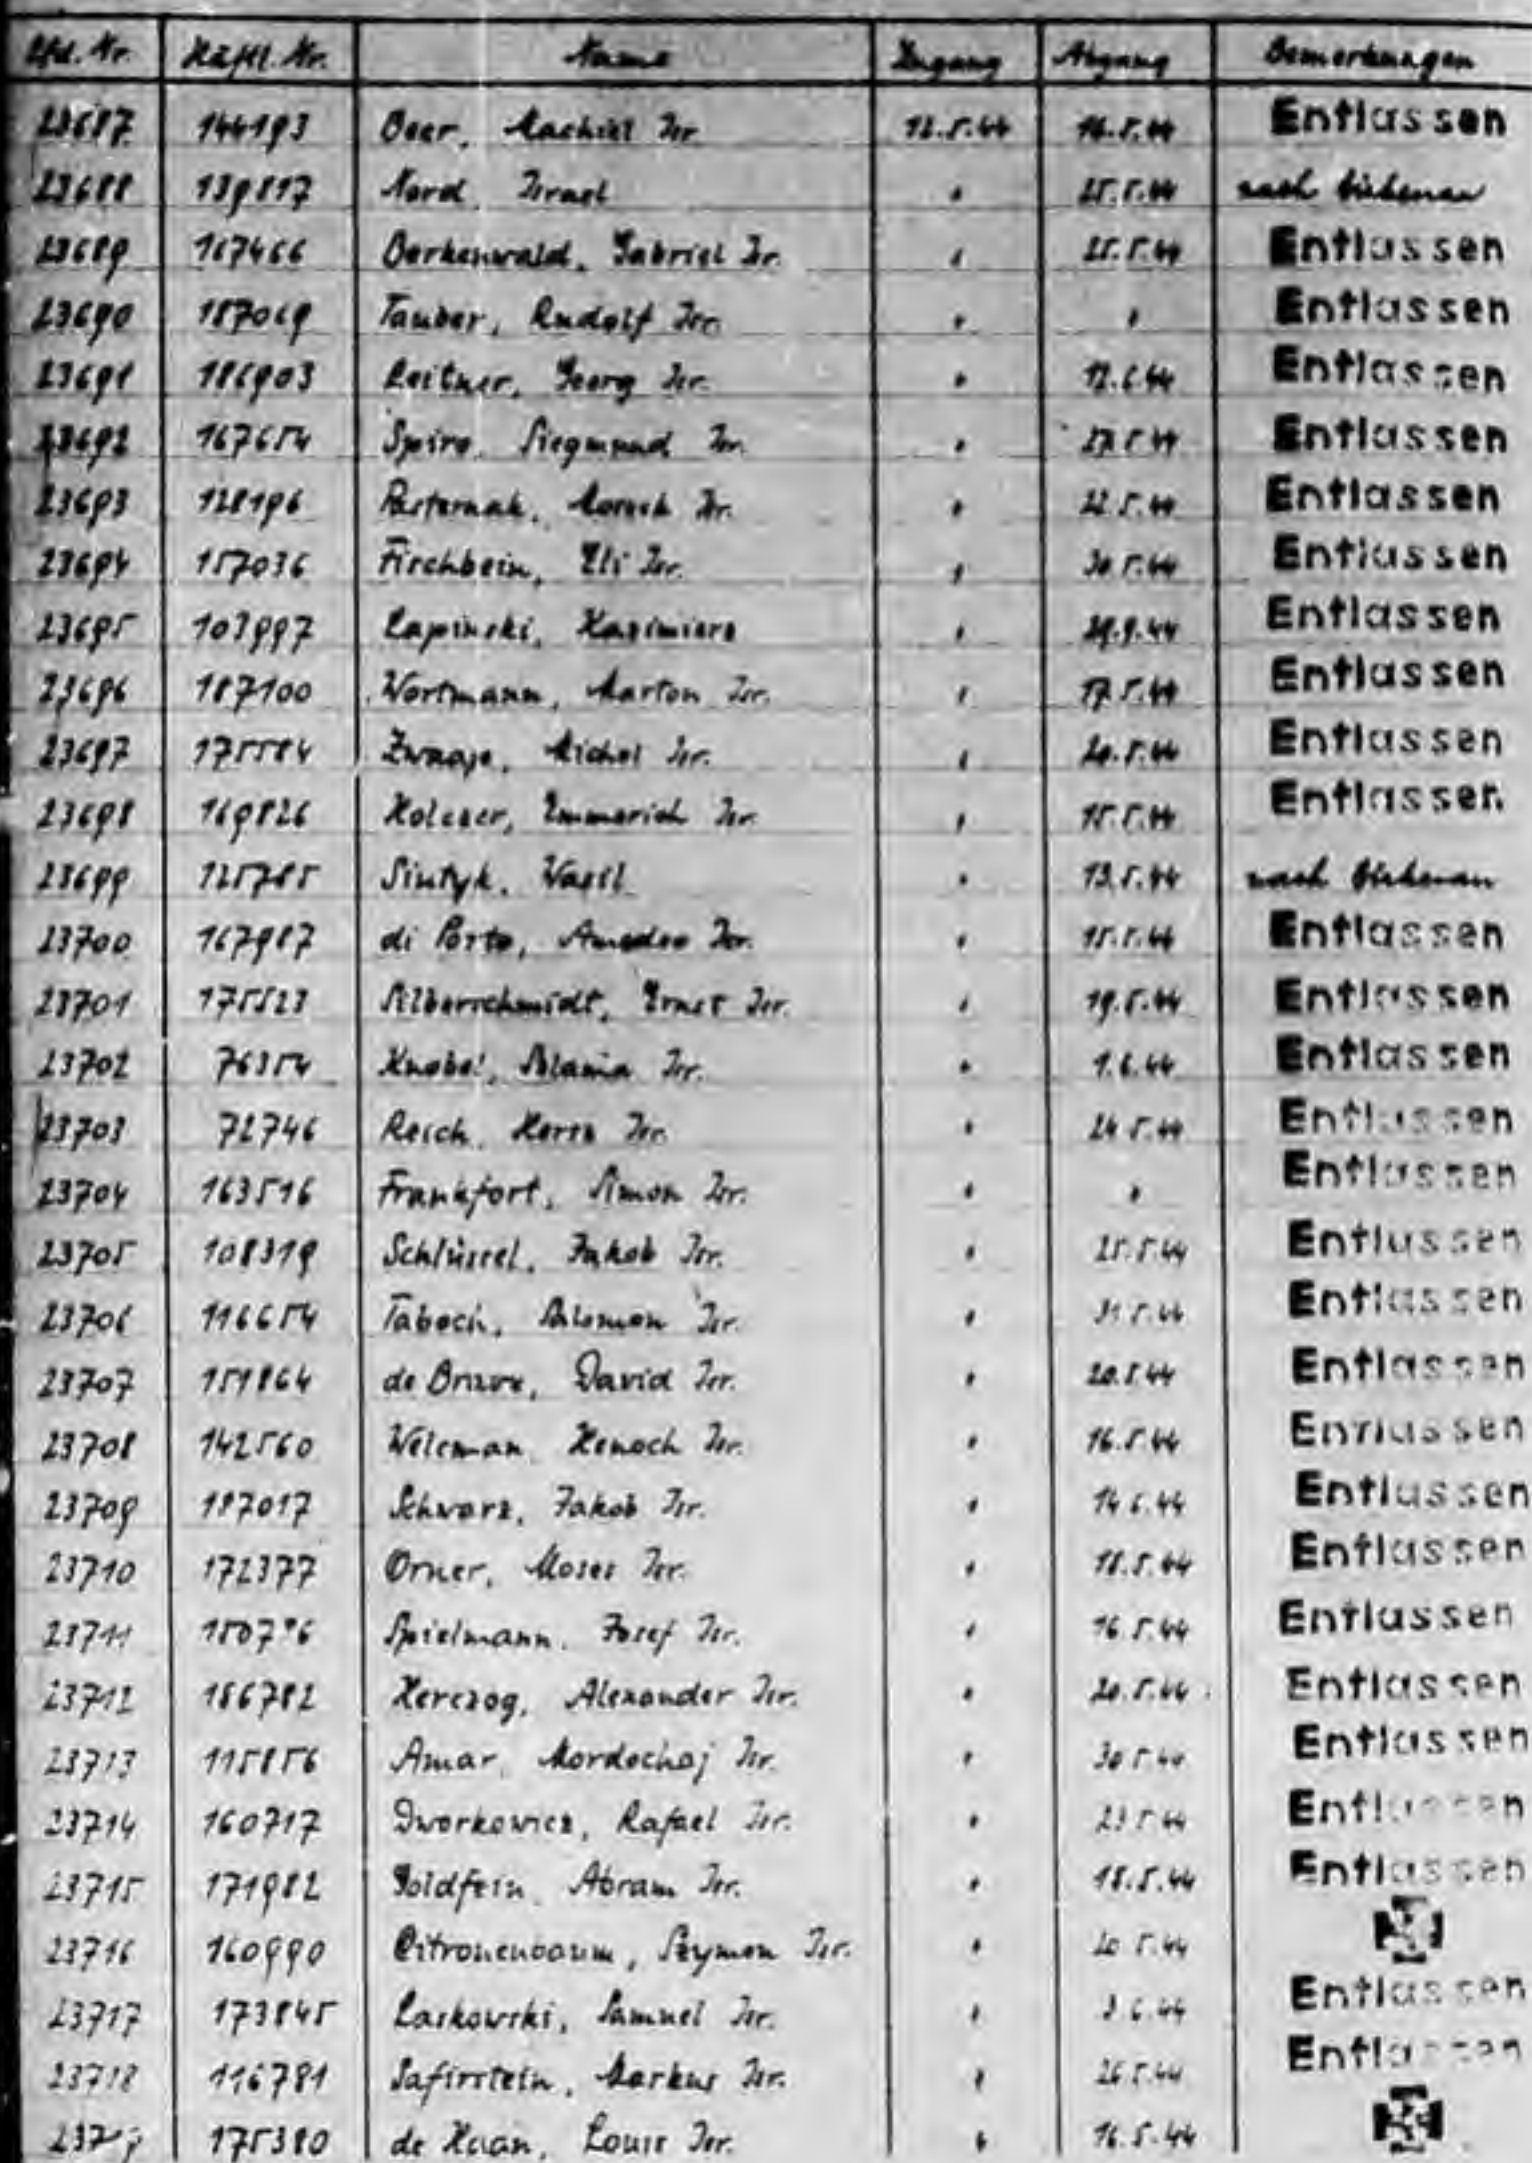 Lfd. Nr. Häftl. Nr. Name Zugang Abgang Bemerkungen
23687 144193 Beer, Machiel Isr. 12.5.44 16.5.44 Entlassen
23688 139817 Nord, Israel " 25.5.44 nach Birkenau
23689 167466 Berkenwald, Gabriel Isr. " 25.5.44 Entlassen
23690 187069 Tauber, Rudolf Isr. " " Entlassen
23691 186903 Leitner, Georg Isr. " 12.6.44 Entlassen
23692 167654 Spiro, Siegmund Isr. " 27.5.44 Entlassen
23693 128196 Pasternak, Isr. " 22.5.44 Entlassen
23694 157036 Fischbein, Eli Isr. " 30.5.44 Entlassen
23695 103997 Lapinski, Kazimierz " Entlassen
23696 187100 Wortmann, Marton Isr. " 17.5.44 Entlassen
23697 175584 Zwaaje, Michel Isr. " 20.5.44 Entlassen
23698 169826 Holczer, Emmerich Isr. " 15.5.44 Entlassen
23699 125785 Sintyk, Wasil " 13.5.44 nach Birkenau
23700 167987 di Porto, Amadeo Isr. " 15.5.44 Entlassen
23701 175523 Silberschmidt, Ernst Isr. " 19.5.44 Entlassen
23702 76354 Knobel, Isr. " 1.6.44 Entlassen
23703 72746 Reich, Hersz Isr. " 24.5.44 Entlassen
23704 163516 Frankfort, Simon Isr. " " Entlassen
23705 108319 Schlüssel, Jakob Isr. " 25.5.44 Entlassen
23706 116654 Taboch, Salomon Isr. " 31.5.44 Entlassen
23707 151864 de Brave, David Isr. " 20.5.44 Entlassen
23708 142560 Welcman, Henoch Isr. " 16.5.44 Entlassen
23709 187017 Schwarz, Jakob Isr. " 14.6.44 Entlassen
23710 172377 Orner, Moses Isr. " 18.5.44 Entlassen
23711 Spielmann, Josef Isr. " 16.5.44 Entlassen
23712 186782 Herczog, Alexander Isr. " 20.5.44 Entlassen
23713 115856 Amar, Mordechaj Isr. " 30.5.44 Entlassen
23714 160717 Dworkowicz, Rafael Isr. " 23.5.44 Entlassen
23715 171982 Goldfein, Abram Isr. " 18.5.44 Entlassen
23716 160990 Citronenbaum, Szymon Isr. " 20.5.44
23717 173845 Laskowski, Samuel Isr. " 3.6.44 Entlassen
23718 116781 Safirstein, Markus Isr. " 26.5.44 Entlassen
23719 175380 de Haan, Louis Isr. " 16.5.44